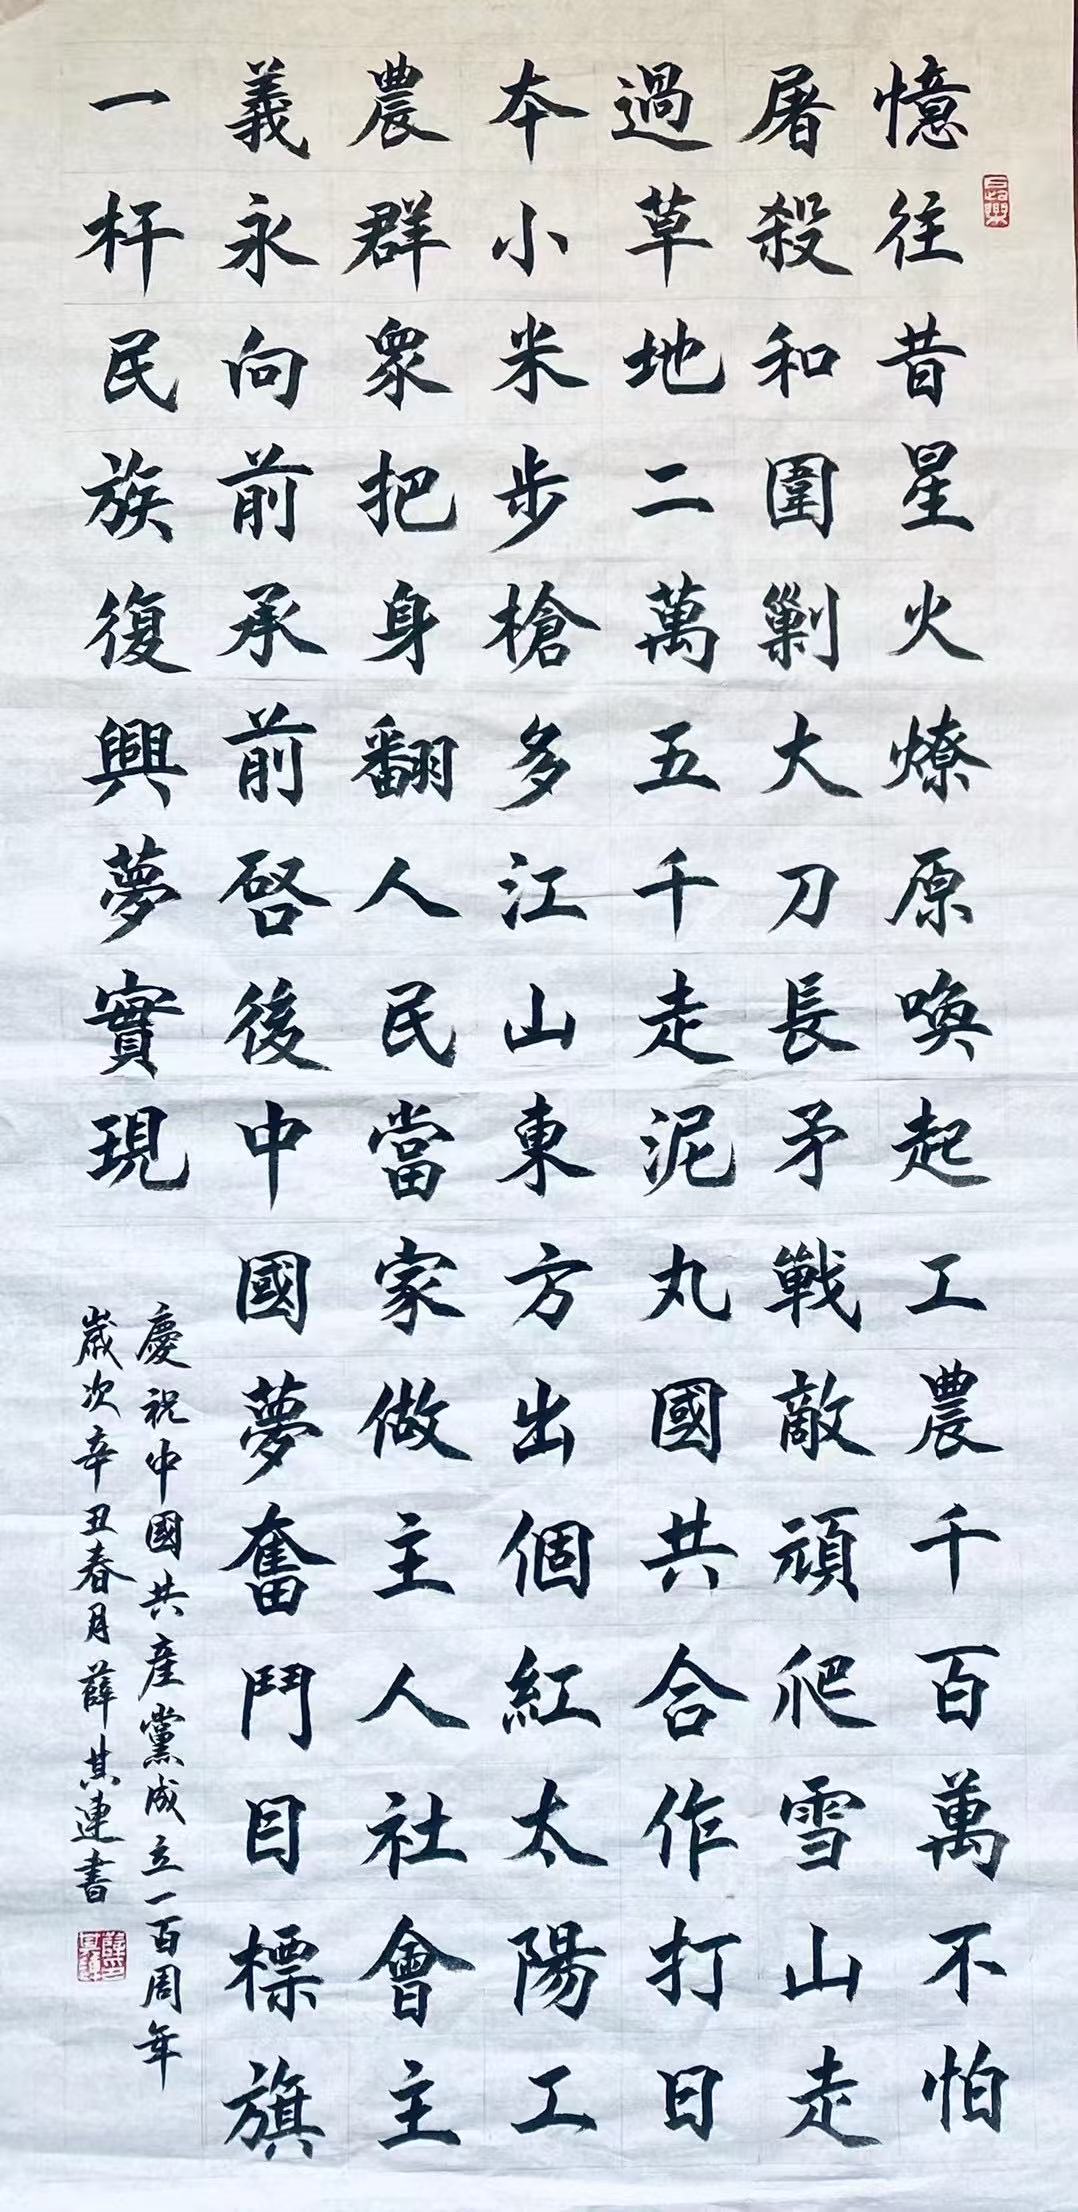 憶往昔星火燎原喚起工農千百萬不怕
屠殺和圍剿大刀長矛戰敵頑爬雪山走
過草地二萬五千走泥丸國共合作打日
本小米步槍多江山東方出個紅太陽工
農群眾把身翻人民當家做主人社會主
義永向前承前啓後中國夢奮鬥目標旗
一杆民族復興夢實現
慶祝中國共產黨成立一百周年
歲次辛丑春月薛其連書